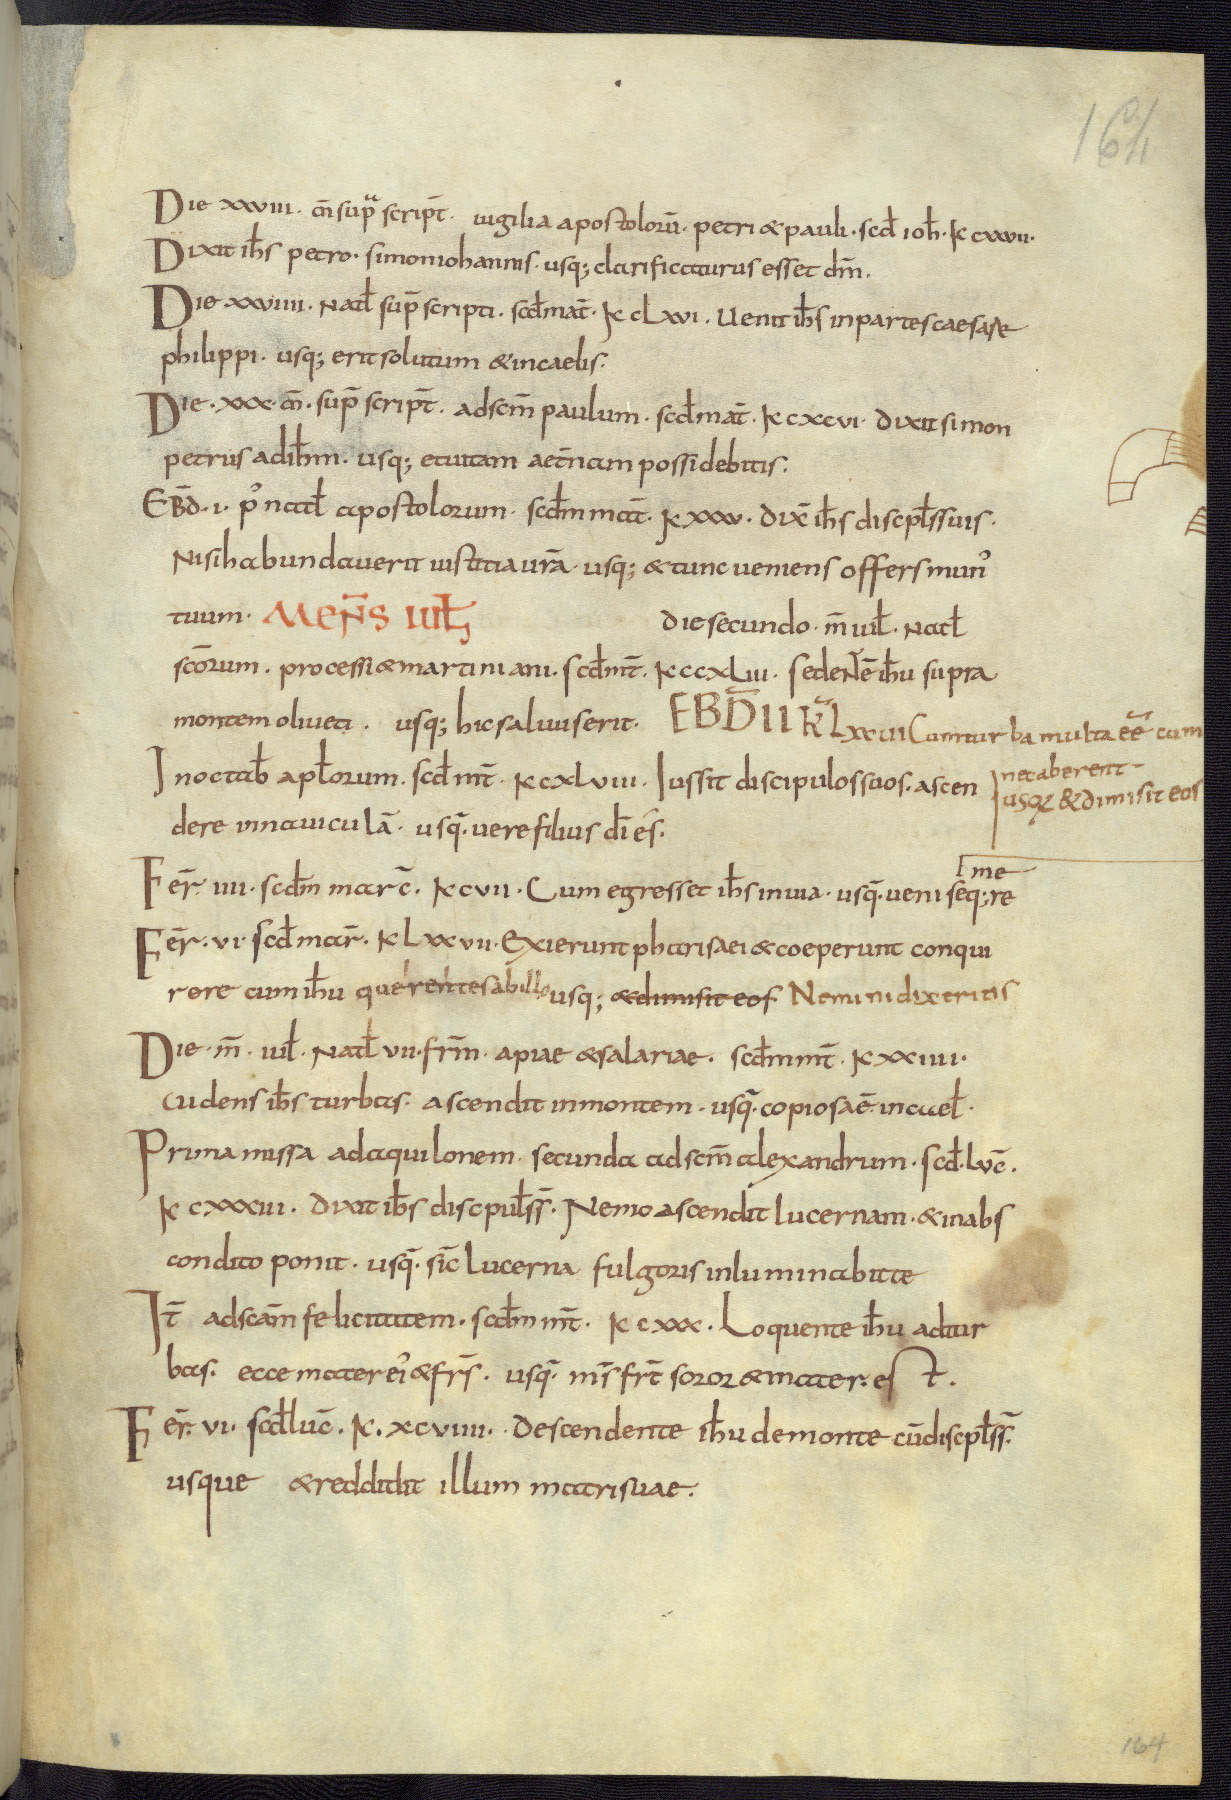 164
Die xxviii. m̄ sup͂ script̄. uigilia apostolorū. petri & pauli. scd̄ ioh̄. k̄ cxxvii.
Dixit ih̄s petro. simon iohannis. usq; clarificaturus esset dm̄.
Die xxviiii. Natl̄ sup͂ scripti. scd̄ mat̄. k̄ clxvi. Uenit ih̄s in partes caesareae
philippi. usq; erit solutum & in caelis.
Die. xxx. m̄. sup͂ script̄. ad scm̄ paulum. scd̄ mat̄. k̄ cxcvi. dixit simon
petrus ad ih̄m. usq; et uitam aet̄nam possidebitis.
EBD̄. i. p̓ natl̄ apostolorum. scd̄m mat̄. k̄ xxv. dix̄ ih̄s discipl̄s suis.
Nisi habundauerit iustitia ur̄a. usq; & tunc ueniens offers mun̓
tuum. MEN̄S IUL̄ die secundo. m̄ iul̄. Natl̄
sc̄orum. processi & martiniani. scd̄ mt̄. k̄ ccxliii. sedentē ih̄u supra
montem oliueti. usq; hic saluus erit. EBD̄ II K̄ Lxxvi Cum turba multa eē cum
nec aberent
usq; & dimisit eos
In octab̄ apl̄orum. scd̄ mt̄. k̄ cxlviii. Iussit discipulos suos. ascen
dere in nauiculā. usq̄. uere filius dī es.
me
Fer̄. iiii. scd̄m marc̄. k̄ cvii. Cum egresset ih̄s in uia. usq̄. ueni seq;re
Fer̄. vi. scd̄ mar̄. k̄ Lxxvii. Exierunt pharisaei & coeperunt conqui
rere cum ih̄u querentes ab illo usq; & dimisit eos Nemini dixeritis
Die. m̄. iul̄. Natl̄ vii. frm̄. apiae & salariae. scd̄m mt̄. k̄ xxiiii.
Uidens ih̄s turbas. ascendit in montem. usq̄. copiosa ē. in cael̄.
Prima missa ad aquilonem. secunda ad scm̄ alexandrum. scd̄. Luc̄.
k̄ cxxxiii. dixit ih̄s discipul̄ss̄. Nemo ascendit lucernam. & in abs
condito ponit. usq̄. sic̄ lucerna fulgoris inluminabit te
It̄ ad scam̄ felicitatem. scd̄m mt̄. k̄ cxxx. Loquente ih̄u ad tur
bas. ecce mater ei̓ & frs̄. usq̄. ms̄ frt̄ soror & mater. est.
Fer̄. vi. scd̄ luc̄. k̄. xcviiii. descendente ih̄u de monte cū discipl̄ss̄.
usque & reddidit illum matri suae.
164